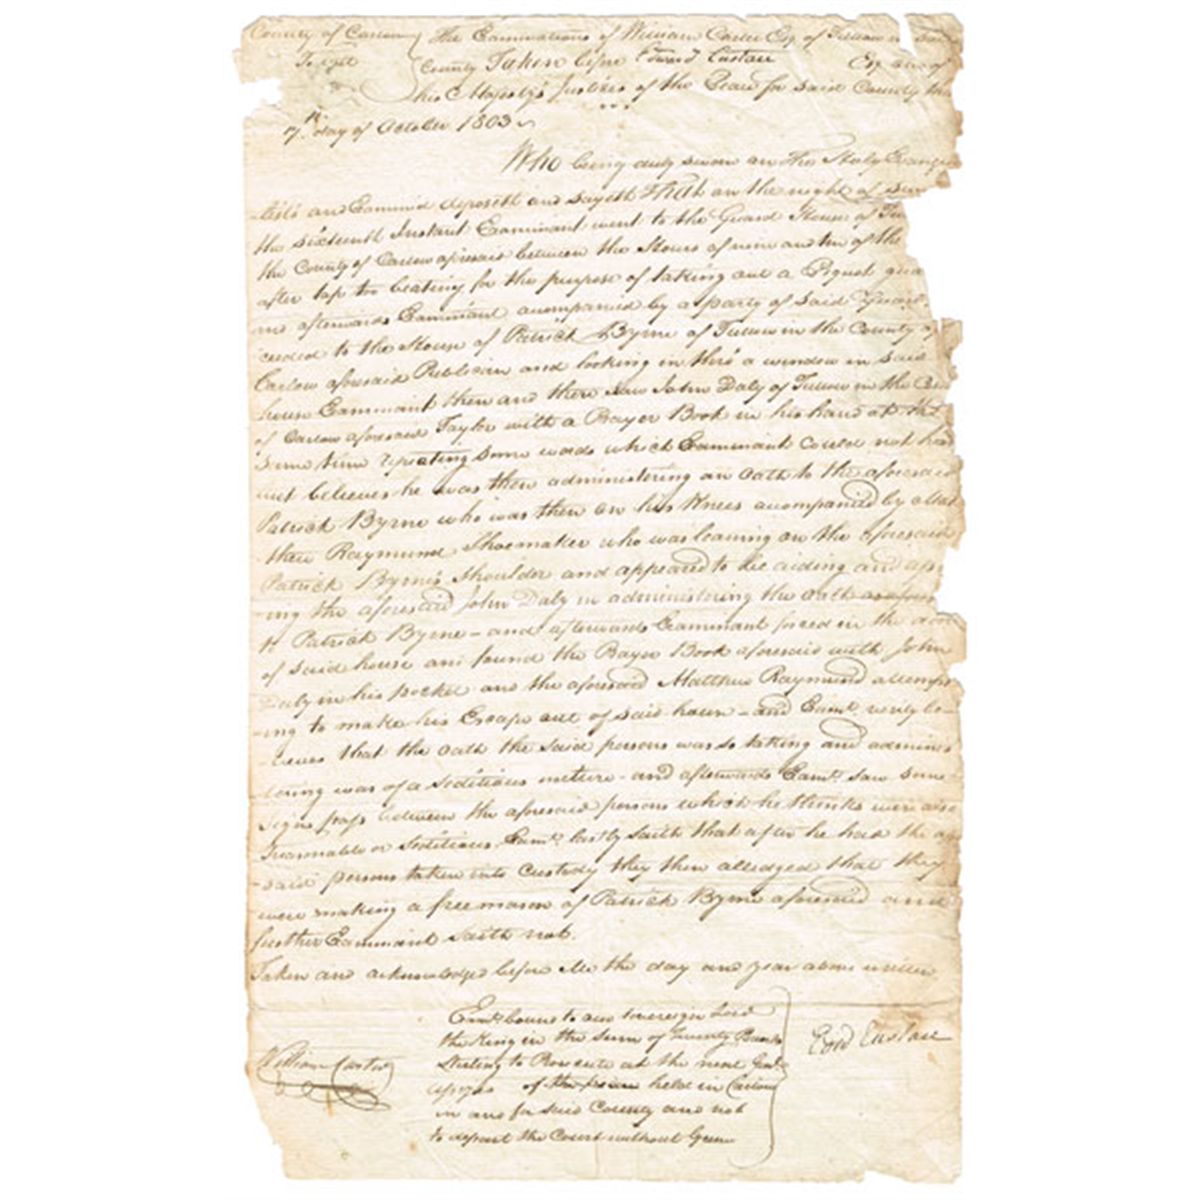 County of Carlow The Examinations of William Carter Esq of Tullow in said
To wit County Taken before Edward Eustace Esq one of
his Majestys Justices of the Peace for said County this
17th day of October 1803
Who being duly sworn on the Holy Evange
lists and Examined deposeth and sayeth That on the night of
the sixteenth Instant Examinant went to the Guard House of Tu
the County of Carlow aforesaid between the Hours of nine and ten of the
after tap too beating for the purpose of taking out a Piquet gua
and afterwards Examinant accompanied by a party of said Guard
ceeded to the House of Patrick Byrne of Tullow in the County of
Carlow aforesaid Publican and looking in thro a window in said
house Examinant then and there saw John Daly of Tullow in the Cou
of Carlow aforesaid Taylor with a Prayer Book in his hand at the
same time repeating some words which Examinant could not hear
but believes he was then administering an oath to the aforesaid
Patrick Byrne who was then on his Knees accompanied by Mat
thew Raymund Shoemaker who was leaning on the aforesaid
Patrick Byrne's shoulder and appeared to be aiding and as
ing the aforesaid John Daly in administering the oath
to Patrick Byrne - and afterwards Examinant forced in the door
of said house and found the Prayer Book aforesaid with John
Daly in his pocket and the aforesaid Matthew Raymund attempt
-ing to make his Escape out of said house - and Examt. verily be-
-lieves that the oath the said persons was so taking and adminis
tering was of a seditious nature - and afterwards Examt. saw some
signs pass between the aforesaid persons which he thinks were also
Treasonable or Seditious. Examt. lastly saith that after he had the a
-said persons taken into Custody they then alledged that they
were making a free mason of Patrick Byrne aforesaid and
further Examinant saith not.
Taken and acknowledged before Me the day and year above written
Examt. bound to our sovereign Lord
the King in the sum of Twenty Pounds
Sterling to Prosecute at the next Genl.
Assizes of the held in Carlow
in and for said County and not
to depart the Court without Leave
William Carter
Edwd Eustace